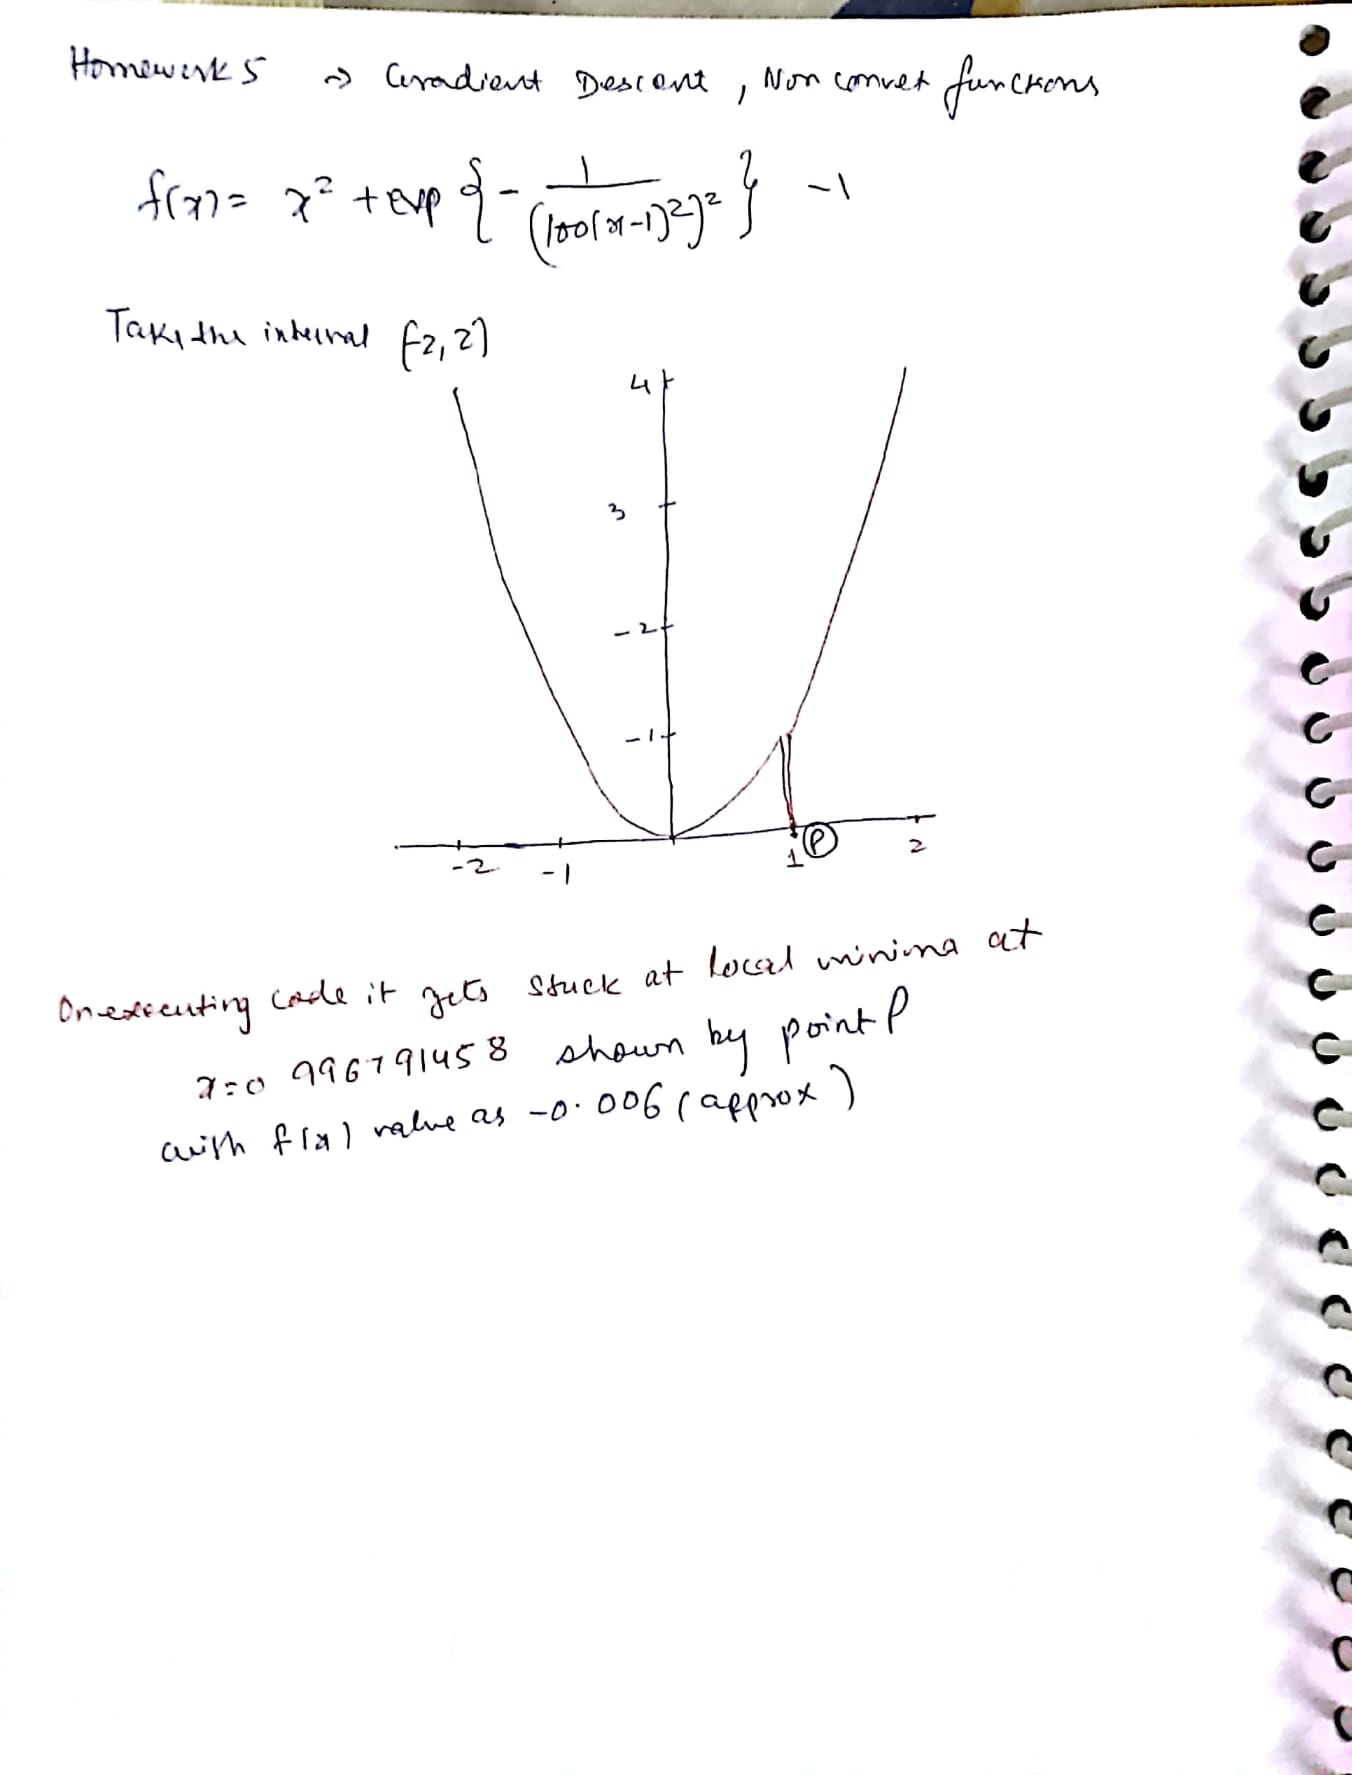 Homework 5 → Gradient Descent, Non convex functions
f(x) = x² + exp { - 1/(100(x-1)²)² } -1
Take the interval [-2, 2]
4
3
-2
-1
-2 -1 1 P 2
On executing code it gets stuck at local minima at
x=0 996791458 shown by point P
with f(x) value as -0.006 (approx)